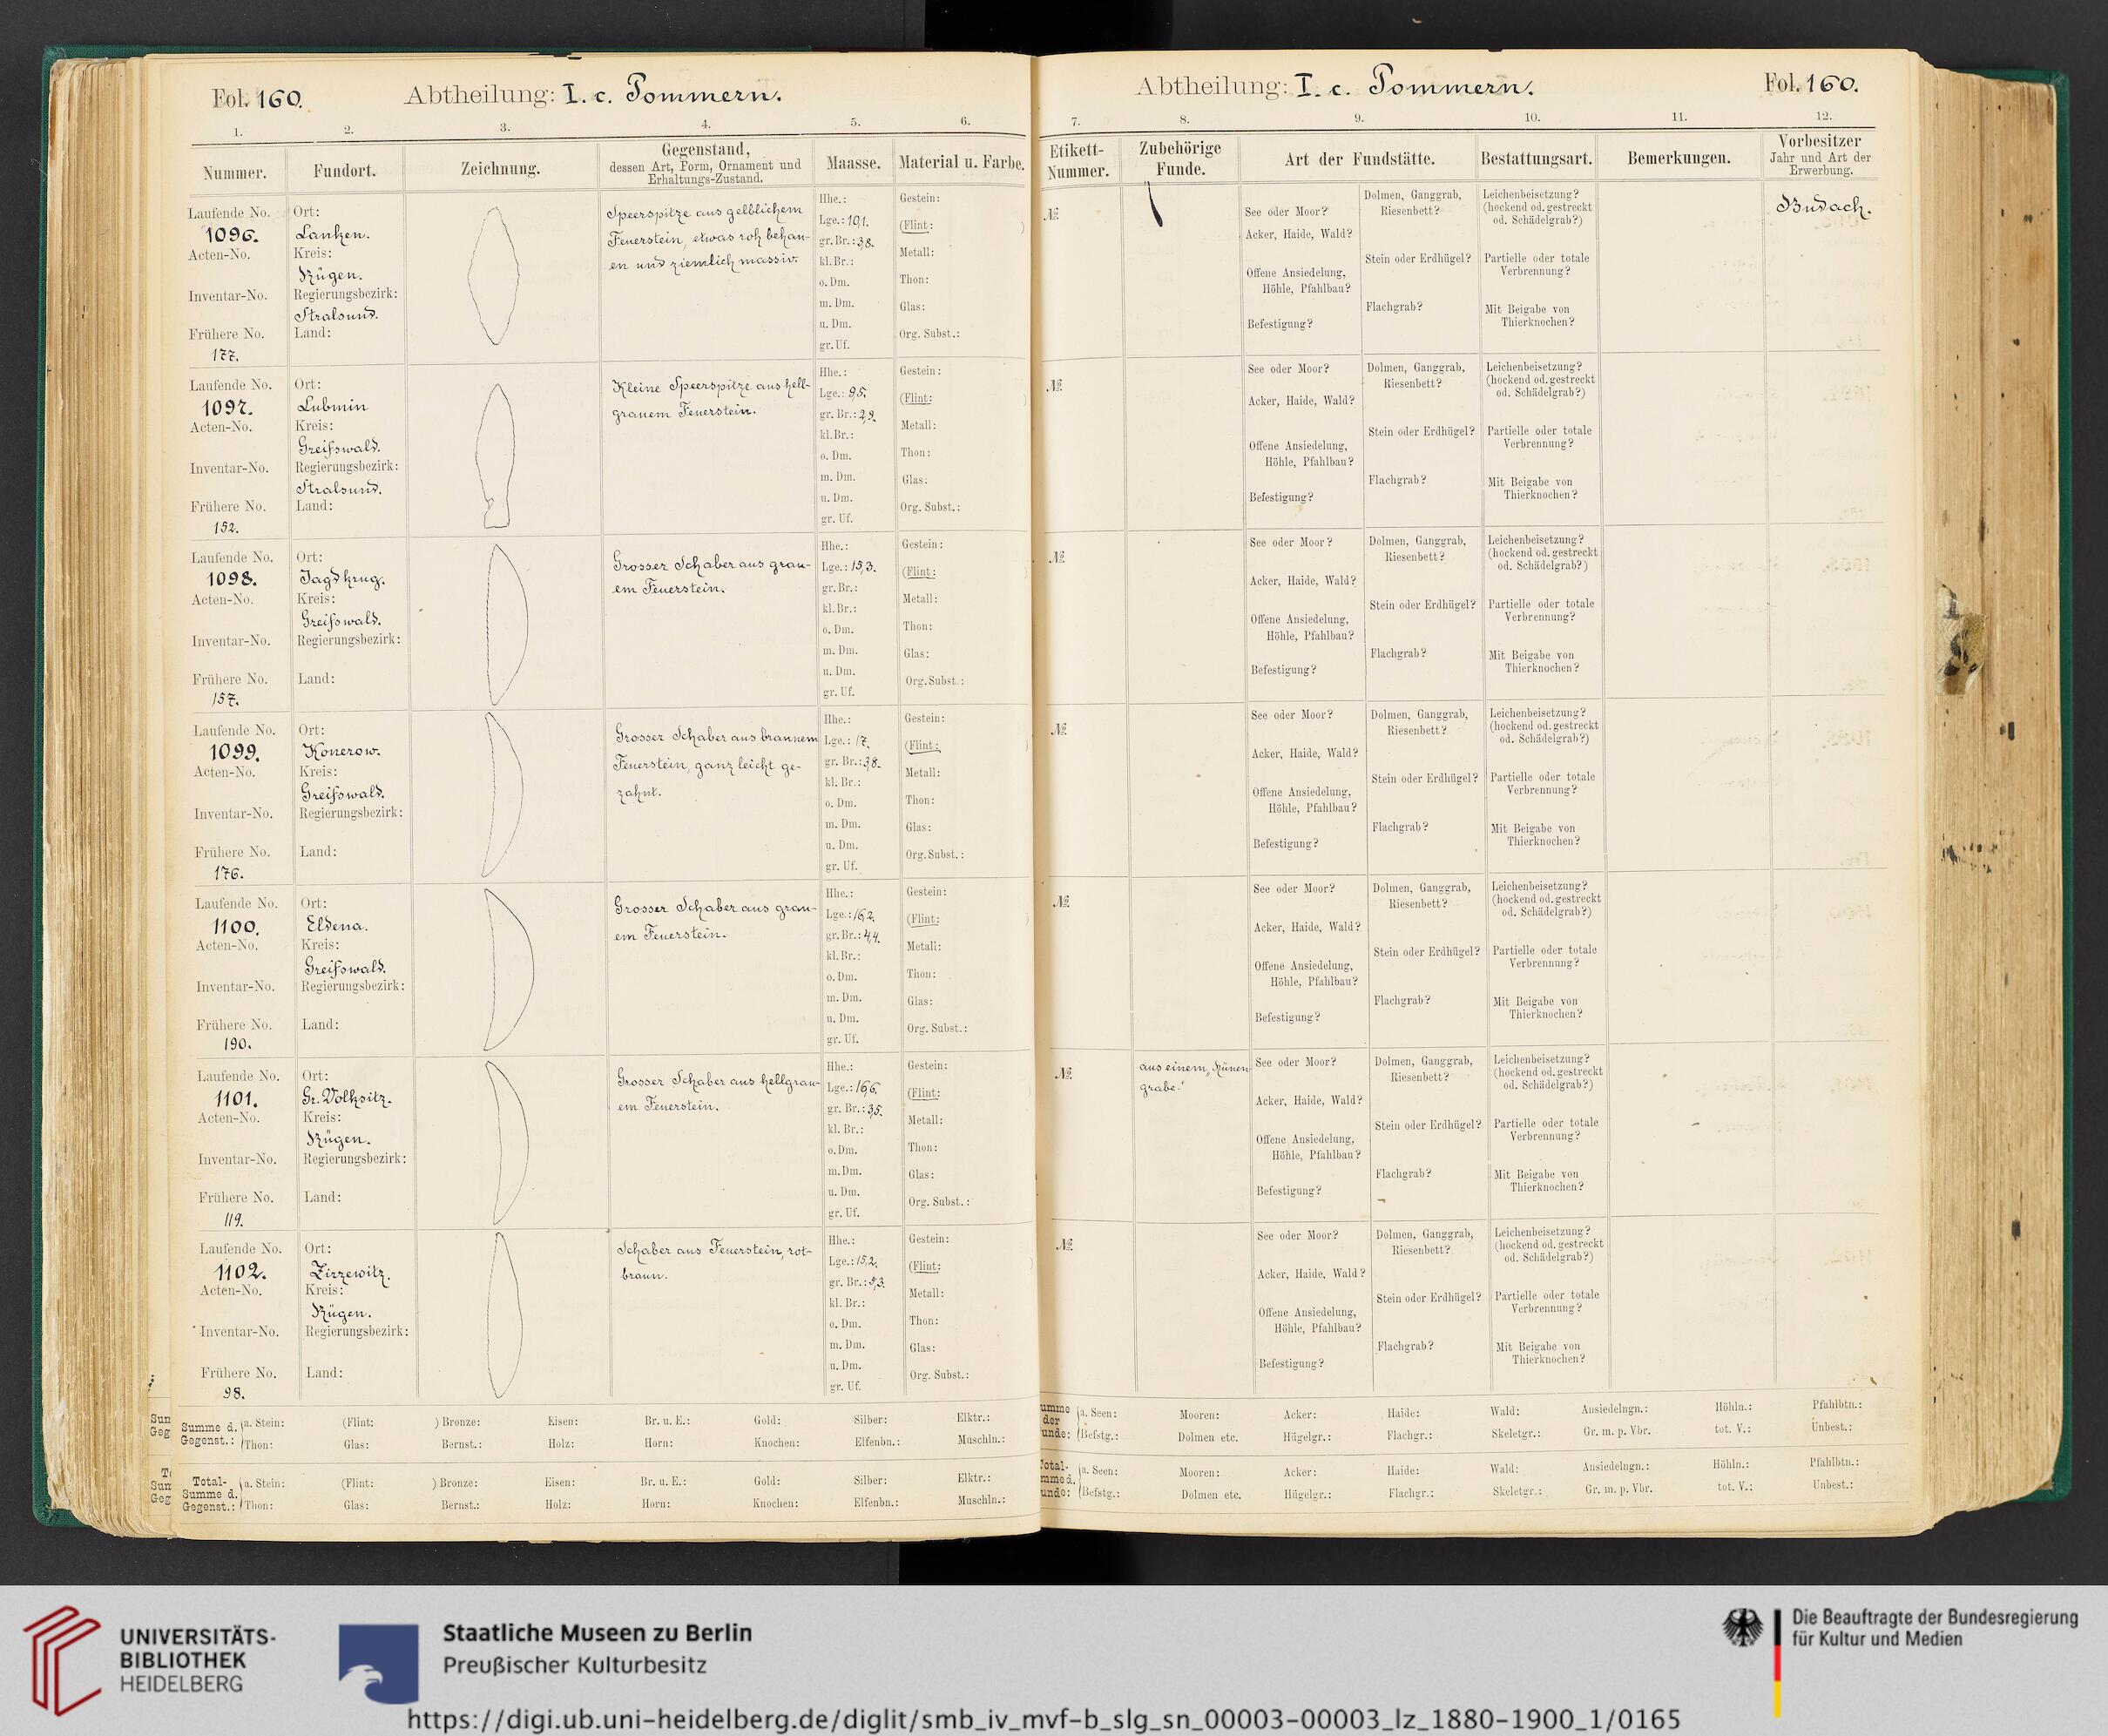 Fol. 160.
Abtheilung: I. c. Pommern.
1. 2. 3. 4. 5. 6.
Nummer. Fundort. Zeichnung. Gegenstand, dessen Art, Form, Ornament und Erhaltungs-Zustand. Maasse. Material u. Farbe.
Laufende No.
1096.
Acten-No.
Inventar-No.
Frühere No.
177.
Ort:
Lanken.
Kreis:
Rügen.
Regierungsbezirk:
Stralsund.
Land:
Speerspitze aus gelblichem
Feuerstein, etwas roh behau-
en und ziemlich massiv.
Hhe.:
Lge.: 10,1.
gr. Br.: 3,8.
kl. Br.:
o. Dm.
m. Dm.
u. Dm.
gr. Uf.
Gestein:
(Flint: )
Metall:
Thon:
Glas:
Org. Subst.:
Laufende No.
1097.
Acten-No.
Inventar-No.
Frühere No.
152.
Ort:
Lubmin
Kreis:
Greifswald.
Regierungsbezirk:
Stralsund.
Land:
Kleine Speerspitze aus hell-
grauem Feuerstein.
Hhe.:
Lge.: 9,5.
gr. Br.: 2,9.
kl. Br.:
o. Dm.
m. Dm.
u. Dm.
gr. Uf.
Gestein:
(Flint: )
Metall:
Thon:
Glas:
Org. Subst.:
Laufende No.
1098.
Acten-No.
Inventar-No.
Frühere No.
157.
Ort:
Jagdkrug.
Kreis:
Greifswald.
Regierungsbezirk:
Land:
Grosser Schaber aus grau-
em Feuerstein.
Hhe.:
Lge.: 15,3.
gr. Br.:
kl. Br.:
o. Dm.
m. Dm.
u. Dm.
gr. Uf.
Gestein:
(Flint: )
Metall:
Thon:
Glas:
Org. Subst.:
Laufende No.
1099.
Acten-No.
Inventar-No.
Frühere No.
176.
Ort:
Konerow.
Kreis:
Greifswald.
Regierungsbezirk:
Land:
Grosser Schaber aus braunem
Feuerstein, ganz leicht ge-
zahnt.
Hhe.:
Lge.: 17.
gr. Br.: 3,8.
kl. Br.:
o. Dm.
m. Dm.
u. Dm.
gr. Uf.
Gestein:
(Flint: )
Metall:
Thon:
Glas:
Org. Subst.:
Laufende No.
1100.
Acten-No.
Inventar-No.
Frühere No.
190.
Ort:
Eldena.
Kreis:
Greifswald.
Regierungsbezirk:
Land:
Grosser Schaber aus grau-
em Feuerstein.
Hhe.:
Lge.: 16,2.
gr. Br.: 4,4.
kl. Br.:
o. Dm.
m. Dm.
u. Dm.
gr. Uf.
Gestein:
(Flint: )
Metall:
Thon:
Glas:
Org. Subst.:
Laufende No.
1101.
Acten-No.
Inventar-No.
Frühere No.
119.
Ort:
Gr. Volksitz.
Kreis:
Rügen.
Regierungsbezirk:
Land:
Grosser Schaber aus hellgrau-
em Feuerstein.
Hhe.:
Lge.: 16,6.
gr. Br.: 3,5.
kl. Br.:
o. Dm.
m. Dm.
u. Dm.
gr. Uf.
Gestein:
(Flint: )
Metall:
Thon:
Glas:
Org. Subst.:
Laufende No.
1102.
Acten-No.
Inventar-No.
Frühere No.
98.
Ort:
Zirzewitz.
Kreis:
Rügen.
Regierungsbezirk:
Land:
Schaber aus Feuerstein, rot-
braun.
Hhe.:
Lge.: 15,2.
gr. Br.: 5,3.
kl. Br.:
o. Dm.
m. Dm.
u. Dm.
gr. Uf.
Gestein:
(Flint: )
Metall:
Thon:
Glas:
Org. Subst.:
Summe d. Gegenst.: a. Stein: (Flint: ) Bronze: Eisen: Br. u. E.: Gold: Silber: Elktr.:
Thon: Glas: Bernst.: Holz: Horn: Knochen: Elfenbn.: Muschln.:
Total-Summe d. Gegenst.: a. Stein: (Flint: ) Bronze: Eisen: Br. u. E.: Gold: Silber: Elktr.:
Thon: Glas: Bernst.: Holz: Horn: Knochen: Elfenbn.: Muschln.:
Abtheilung: I. c. Pommern.
Fol. 160.
7. 8. 9. 10. 11. 12.
Etikett-Nummer. Zubehörige Funde. Art der Fundstätte. Bestattungsart. Bemerkungen. Vorbesitzer Jahr und Art der Erwerbung.
№
See oder Moor?
Acker, Haide, Wald?
Offene Ansiedelung,
Höhle, Pfahlbau?
Befestigung?
Dolmen, Ganggrab,
Riesenbett?
Stein oder Erdhügel?
Flachgrab?
Leichenbeisetzung?
(hockend od. gestreckt
od. Schädelgrab?)
Partielle oder totale
Verbrennung?
Mit Beigabe von
Thierknochen?
Budach.
№
See oder Moor?
Acker, Haide, Wald?
Offene Ansiedelung,
Höhle, Pfahlbau?
Befestigung?
Dolmen, Ganggrab,
Riesenbett?
Stein oder Erdhügel?
Flachgrab?
Leichenbeisetzung?
(hockend od. gestreckt
od. Schädelgrab?)
Partielle oder totale
Verbrennung?
Mit Beigabe von
Thierknochen?
№
See oder Moor?
Acker, Haide, Wald?
Offene Ansiedelung,
Höhle, Pfahlbau?
Befestigung?
Dolmen, Ganggrab,
Riesenbett?
Stein oder Erdhügel?
Flachgrab?
Leichenbeisetzung?
(hockend od. gestreckt
od. Schädelgrab?)
Partielle oder totale
Verbrennung?
Mit Beigabe von
Thierknochen?
№
See oder Moor?
Acker, Haide, Wald?
Offene Ansiedelung,
Höhle, Pfahlbau?
Befestigung?
Dolmen, Ganggrab,
Riesenbett?
Stein oder Erdhügel?
Flachgrab?
Leichenbeisetzung?
(hockend od. gestreckt
od. Schädelgrab?)
Partielle oder totale
Verbrennung?
Mit Beigabe von
Thierknochen?
№
See oder Moor?
Acker, Haide, Wald?
Offene Ansiedelung,
Höhle, Pfahlbau?
Befestigung?
Dolmen, Ganggrab,
Riesenbett?
Stein oder Erdhügel?
Flachgrab?
Leichenbeisetzung?
(hockend od. gestreckt
od. Schädelgrab?)
Partielle oder totale
Verbrennung?
Mit Beigabe von
Thierknochen?
№
aus einem „Hünen-
grabe.“
See oder Moor?
Acker, Haide, Wald?
Offene Ansiedelung,
Höhle, Pfahlbau?
Befestigung?
Dolmen, Ganggrab,
Riesenbett?
Stein oder Erdhügel?
Flachgrab?
Leichenbeisetzung?
(hockend od. gestreckt
od. Schädelgrab?)
Partielle oder totale
Verbrennung?
Mit Beigabe von
Thierknochen?
№
See oder Moor?
Acker, Haide, Wald?
Offene Ansiedelung,
Höhle, Pfahlbau?
Befestigung?
Dolmen, Ganggrab,
Riesenbett?
Stein oder Erdhügel?
Flachgrab?
Leichenbeisetzung?
(hockend od. gestreckt
od. Schädelgrab?)
Partielle oder totale
Verbrennung?
Mit Beigabe von
Thierknochen?
umme der unde: a. Seen: Mooren: Acker: Haide: Wald: Ansiedelngn.: Höhln.: Pfahlbtn.:
Befstg.: Dolmen etc. Hügelgr.: Flachgr.: Skeletgr.: Gr. m. p. Vbr. tot. V.: Unbest.:
Total- mmed. unde: a. Seen: Mooren: Acker: Haide: Wald: Ansiedelngn.: Höhln.: Pfahlbtn.:
Befstg.: Dolmen etc. Hügelgr.: Flachgr.: Skeletgr.: Gr. m. p. Vbr. tot. V.: Unbest.:
UNIVERSITÄTS-
BIBLIOTHEK
HEIDELBERG
Staatliche Museen zu Berlin
Preußischer Kulturbesitz
Die Beauftragte der Bundesregierung
für Kultur und Medien
https://digi.ub.uni-heidelberg.de/diglit/smb_iv_mvf-b_slg_sn_00003-00003_lz_1880-1900_1/0165